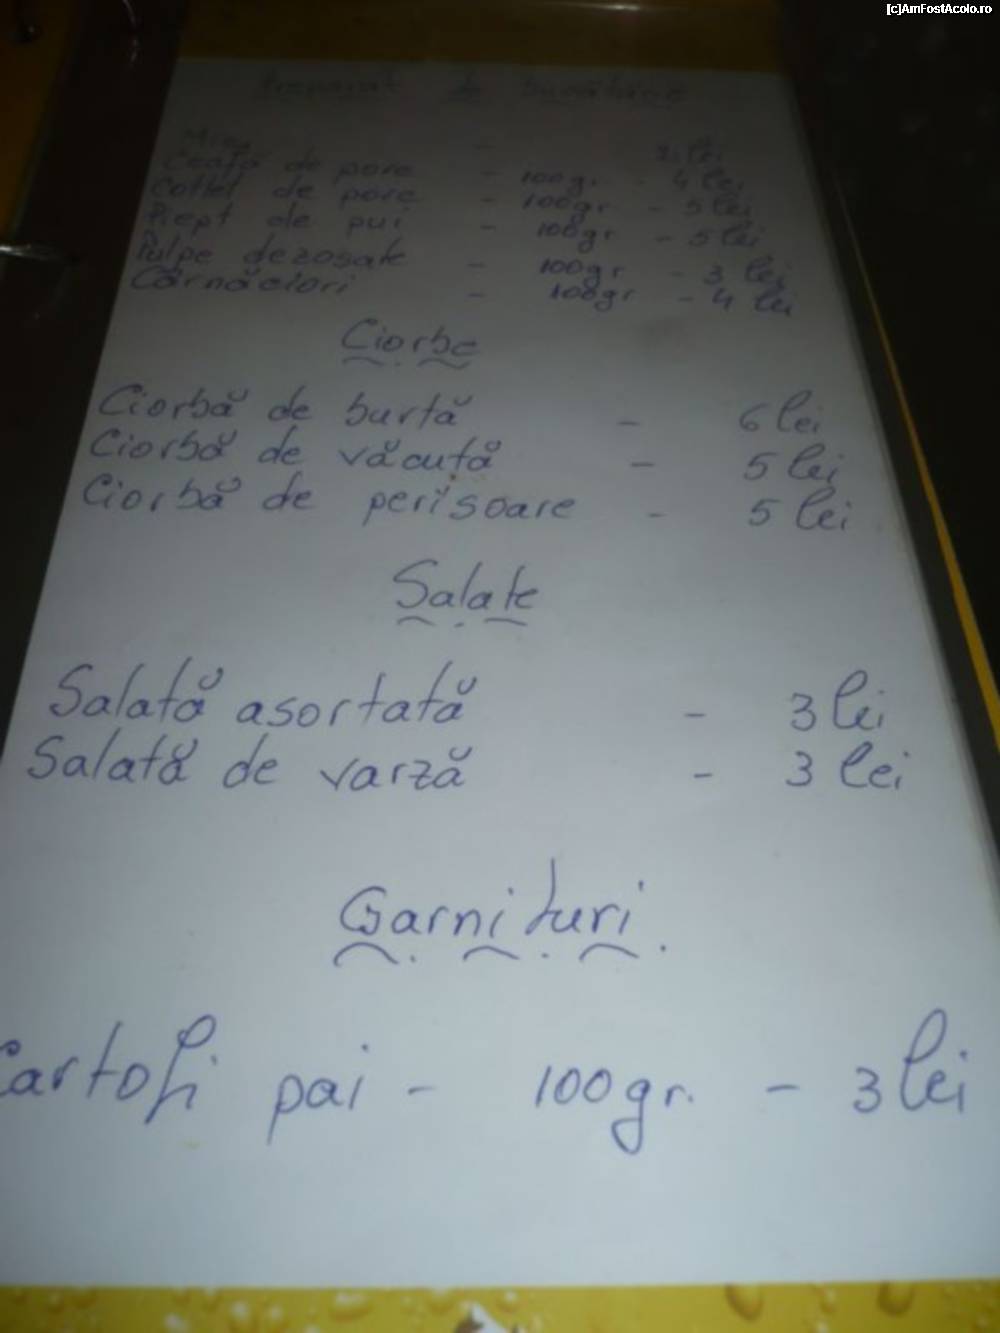 [c]AmFostAcolo.ro
Preparat de bucătărie
Mici - 2 lei
Ceafă de porc - 100gr. - 4 lei
Cotlet de porc - 100gr - 5 lei
Piept de pui - 100gr - 5 lei
Pulpe dezosate - 100gr - 3 lei
Cârnăciori - 100gr - 4 lei
Ciorbe
Ciorbă de burtă - 6 lei
Ciorbă de văcuță - 5 lei
Ciorbă de perisoare - 5 lei
Salate
Salată asortată - 3 lei
Salată de varză - 3 lei
Garnituri
Cartofi pai - 100gr. - 3 lei